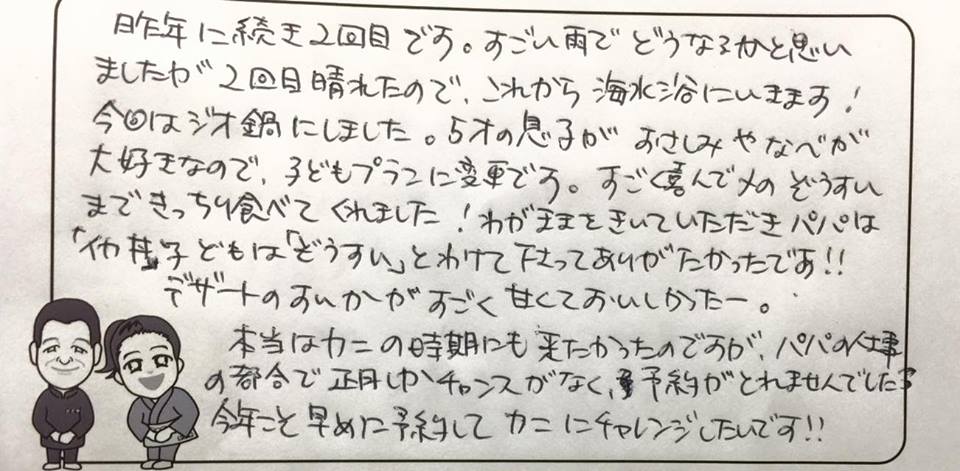 昨年に続き2回目です。すごい雨でどうなるかと思い
ましたが2回目晴れたので、これから海水浴にいきます!
今回はジオ鍋にしました。5才の息子がおさしみやなべが
大好きなので、子どもプランに変更です。すごく喜んで〆のぞうすい
まできっちり食べてくれました!わがままをきいていただきパパは
「イカ丼」子どもは「ぞうすい」とわけて下さってありがたかったです!!
デザートのすいかがすごく甘くておいしかったー。
本当はカニの時期にも来たかったのですが、パパの仕事
の都合で正月しかチャンスがなく、予約がとれませんでした
今年こそ早めに予約してカニにチャレンジしたいです!!